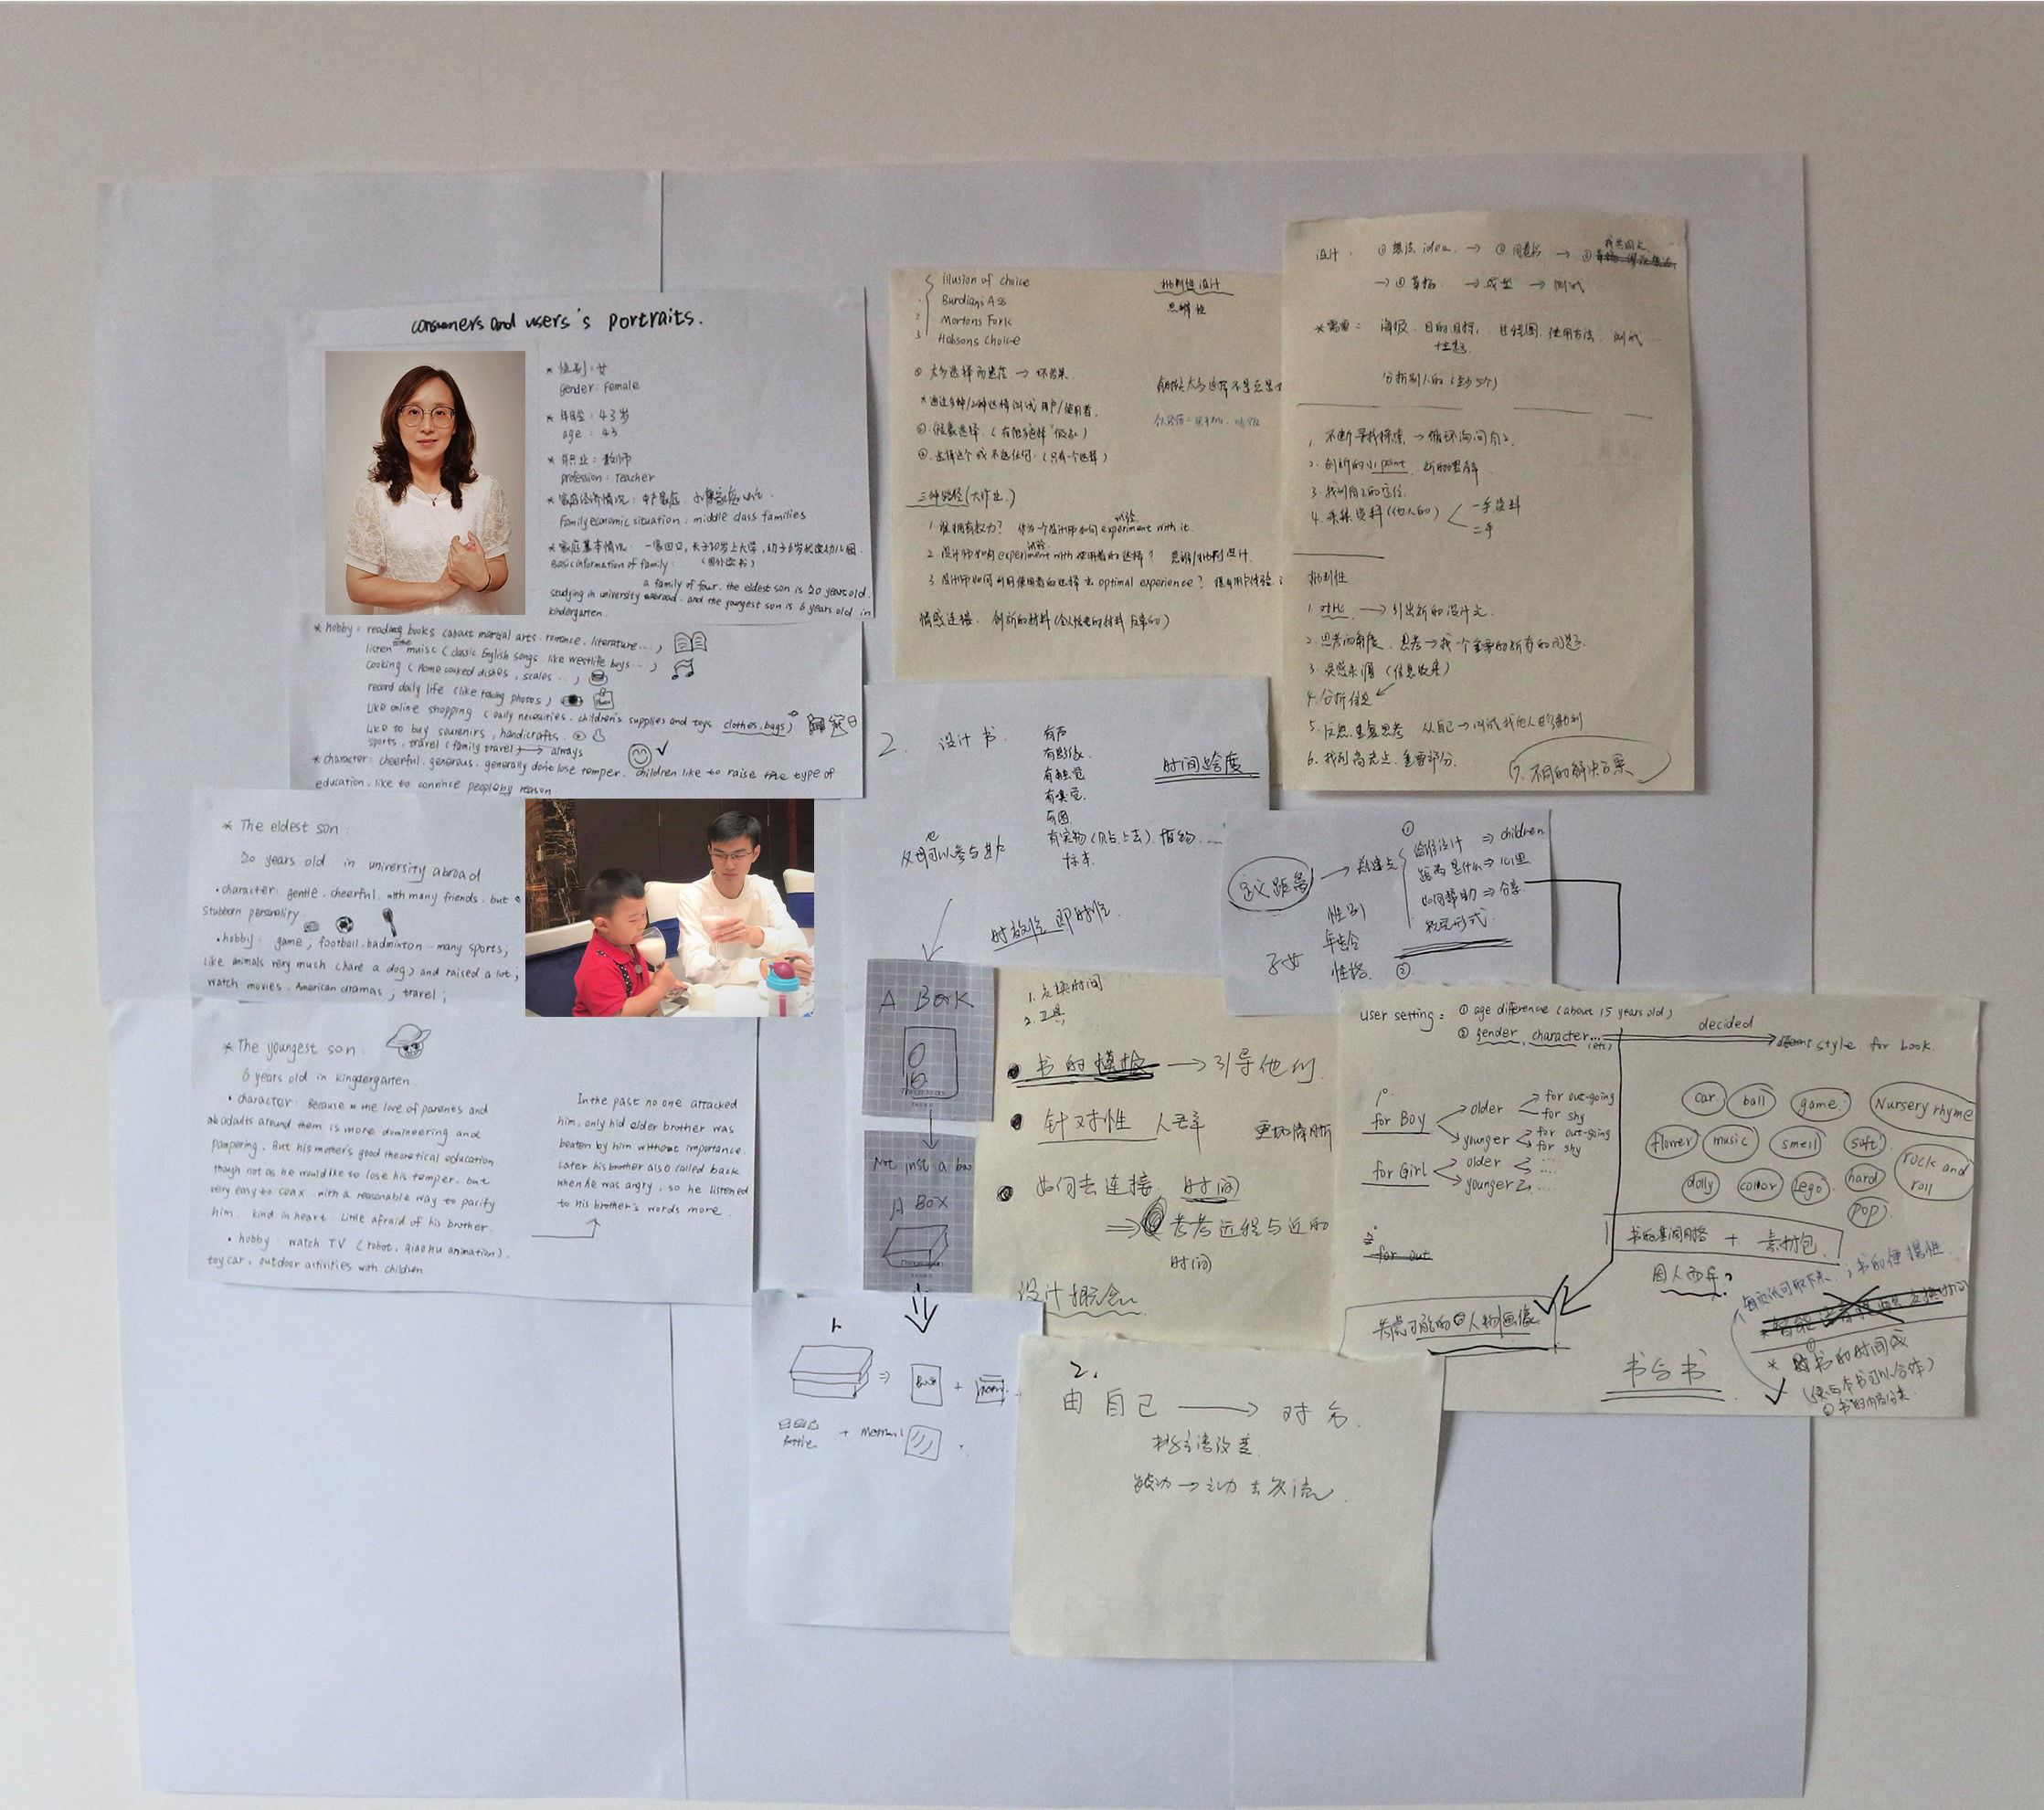 consumers and users's portraits.
* 性别：女
gender: Female
* 年龄：43岁
age : 43
* 职业：教师
profession: Teacher
* 家庭经济情况：中产家庭
Family economic situation : middle class families
* 家庭基本情况：一家四口，长子20岁上大学，幼子6岁就读幼儿园.
(国外读书)
Basic information of family :
a family of four. the eldest son is 20 years old.
studying in university abroad. and the youngest son is 6 years old in
kindergarten.
* hobby : reading books (about martial arts. romance. literature...)
listen muisc (classic English songs like westlife boys...)
cooking (Home cooked dishes, scales ...)
record daily life (like taking photos)
Like online shopping (Daily necessities. children's supplies and toys. clothes, bags)
Like to buy souvenirs, handicrafts.
sports, travel (family travel) → always
* character: cheerful. generous. generally don't lose temper. children like to raise the type of
education. like to convince people by reason.
* The eldest son :
20 years old in university abroad
• character: gentle. cheerful. with many friends. but a
stubborn personality.
• hobby : game ; football. badminton many sports;
like animals very much (have a dog) and raised a lot;
watch movies. American dramas ; travel ;
* The youngest son :
6 years old in kingdergarten
• character: Because the love of parents and
around them is more domineering and
pampering. But his mother's good theoretical education
though not as he would like to lose his temper. but
very easy to coax with a reasonable way to pacify
him. kind in heart. Little afraid of his brother.
• hobby : watch TV (robot, qiaohu animation).
toy car, outdoor activities with children
In the past no one attacked
him, only hid older brother was
beaten by him without importance.
Later his brother also called back
when he was angry, so he listened
to his brother's words more.
illusion of choice
1 Burdians Ass
2 Mortons Fork
3 Hobsons choice
批判性设计
思辨性
① 太多选择而迷茫 → 坏结果.
③ 假象选择.
④ 选择这个或不选任何. (只有一个选择)
三种路径(大作业.)
1 谁拥有权力? 作为一个设计师如何 experiment with it.
2 设计师如何 experiment with 使用者的选择? 思辨/批判设计.
3 设计师如何利用使用者的选择去 optimal experience?
情感连接.
设计： ① 想法 idea. →
→ ④ 草稿. → 成型 → 测试
* 需要： 海报. 目的目标, 过程图. 使用方法. 测试
分析别人的 (至少5个)
2. 创新的小point
3. 找到自己的定位.
4. 采集资料(他人的) 一手资料
二手
批判性
1. 对比 → 引出新的设计点.
3. 灵感来源 (信息收集)
4. 分析信息
6. 找到高亮点. 重要部分.
7. 不同的解决方案
2. 设计书.
有声
有触觉.
有嗅觉.
有图.
有实物 (贴上去). 植物. ...
标本.
时间跨度
父母可以参与其中
即时性.
定义距离 → 关键点
① 给谁设计 ⇒ children
距离是什么 ⇒ 心里
如何帮助 ⇒ 分享
②
子女
性别
年龄
性格.
A Book
Not just a box
A BOX
1. 交换时间
2. 工具
书的模板 → 引导他们
针对性 人群
如何去连接 时间
⇒ 思考远程与近的
时间
设计概念
user setting : ① age difference (about 15 years old)
② gender, character... (etc) decided style for book.
1°
for Boy older for out-going
for shy
younger for out-going
for shy
for Girl older ....
younger ....
2
for out
car ball game. Nursery rhyme
flower music smell soft
rock and roll
dolly color Lego hard
pop
书的基调风格 + 素材包.
因人而异?
考虑可能的人物画像
书与书
书的便携性
* 书的时间或
(使两本书可以合作)
② 书的内容分类.
1.
⇒ Book +
Bottle +
2.
由自己 → 对方.
被动 → 主动去交流